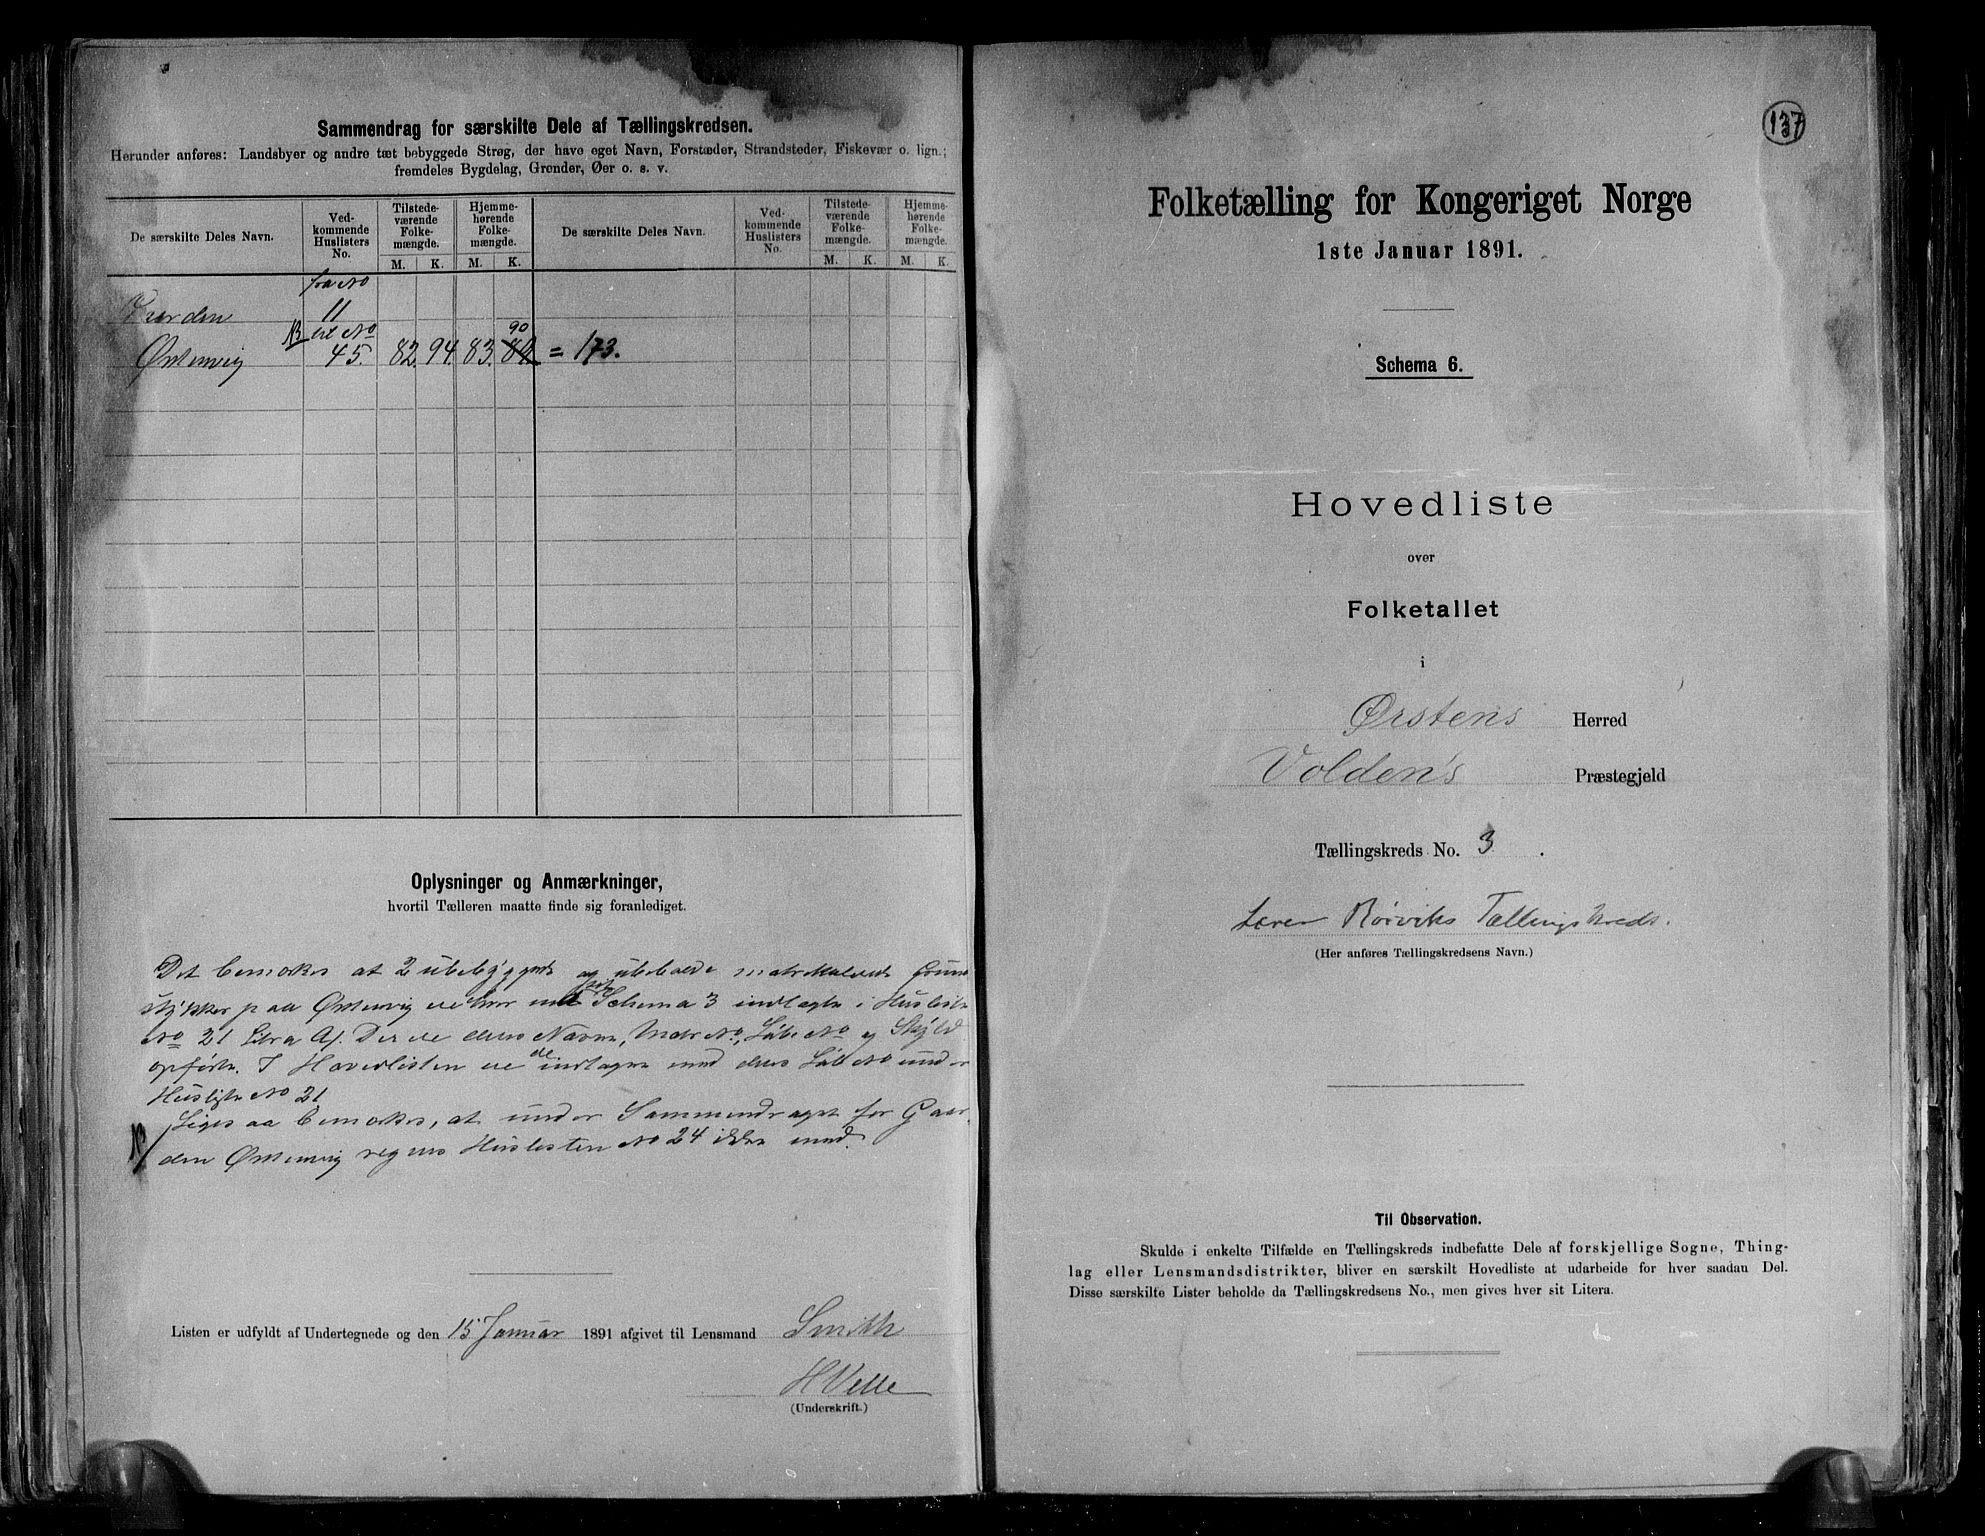 Sammendrag for særskilte Dele af Tællingskredsen.
Herunder anføres: Landsbyer og andre tæt bebyggede Strøg, der have eget Navn, Forstæder, Strandsteder, Fiskevær o. lign.;
fremdeles Bygdelag, Grender, Øer o. s. v.
De særskilte Deles Navn.
Ved-
kommende
Huslisters
No.
Tilstede-
værende
Folke-
mængde.
Hjemme-
hørende
Folke-
mængde.
M. K. M. K.
De særskilte Deles Navn.
Ved-
kommende
Huslisters
No.
Tilstede-
værende
Folke-
mængde.
Hjemme-
hørende
Folke-
mængde.
M. K. M. K.
fra No
11
NB til No 90
Østenvig 45. 82. 94. 83. = 173.
Oplysninger og Anmærkninger,
hvortil Tælleren maatte finde sig foranlediget.
Det bemærkes at 2 ubebyggede og ubeboede matrikulerede Grund
stykker paa Østenvig ere hver Schema 3 indlagte i Husliste
No 21 Litra A. Der ere deres Navne, Matr No, Løbe No og Skyld
opførte. I Hovedlisten ere de indtagne med deres Løbe No under
Husliste No 21
NB Ligesaa bemærkes, at under Sammendraget for Gaar-
den Østenvig regnes Huslisten No 24 ikke med.
Listen er udfyldt af Undertegnede og den 15 Januar 1891 afgivet til Lensmand Smith
H Velle
(Underskrift.)
137
Folketælling for Kongeriget Norge
1ste Januar 1891.
Schema 6.
Hovedliste
over
Folketallet
i
Ørstens Herred
Volden's Præstegjeld
Tællingskreds No. 3.
Lærer Rørviks Tællingskreds.
(Her anføres Tællingskredsens Navn.)
Til Observation.
Skulde i enkelte Tilfælde en Tællingskreds indbefatte Dele af forskjellige Sogne, Thing-
lag eller Lensmandsdistrikter, bliver en særskilt Hovedliste at udarbeide for hver saadan Del.
Disse særskilte Lister beholde da Tællingskredsens No., men gives hver sit Litera.